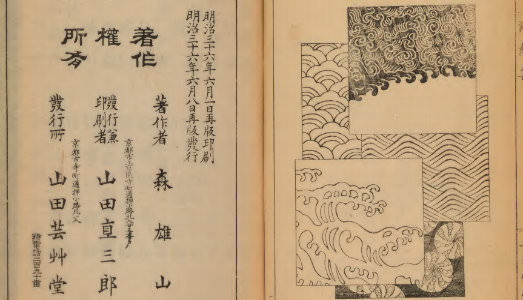 明治三十六年六月一日再版印刷
明治三十六年六月八日再版發行
著作
權
所有
著作者 森雄山
發行兼印刷者 山田直三郎
發行所 山田芸艸堂